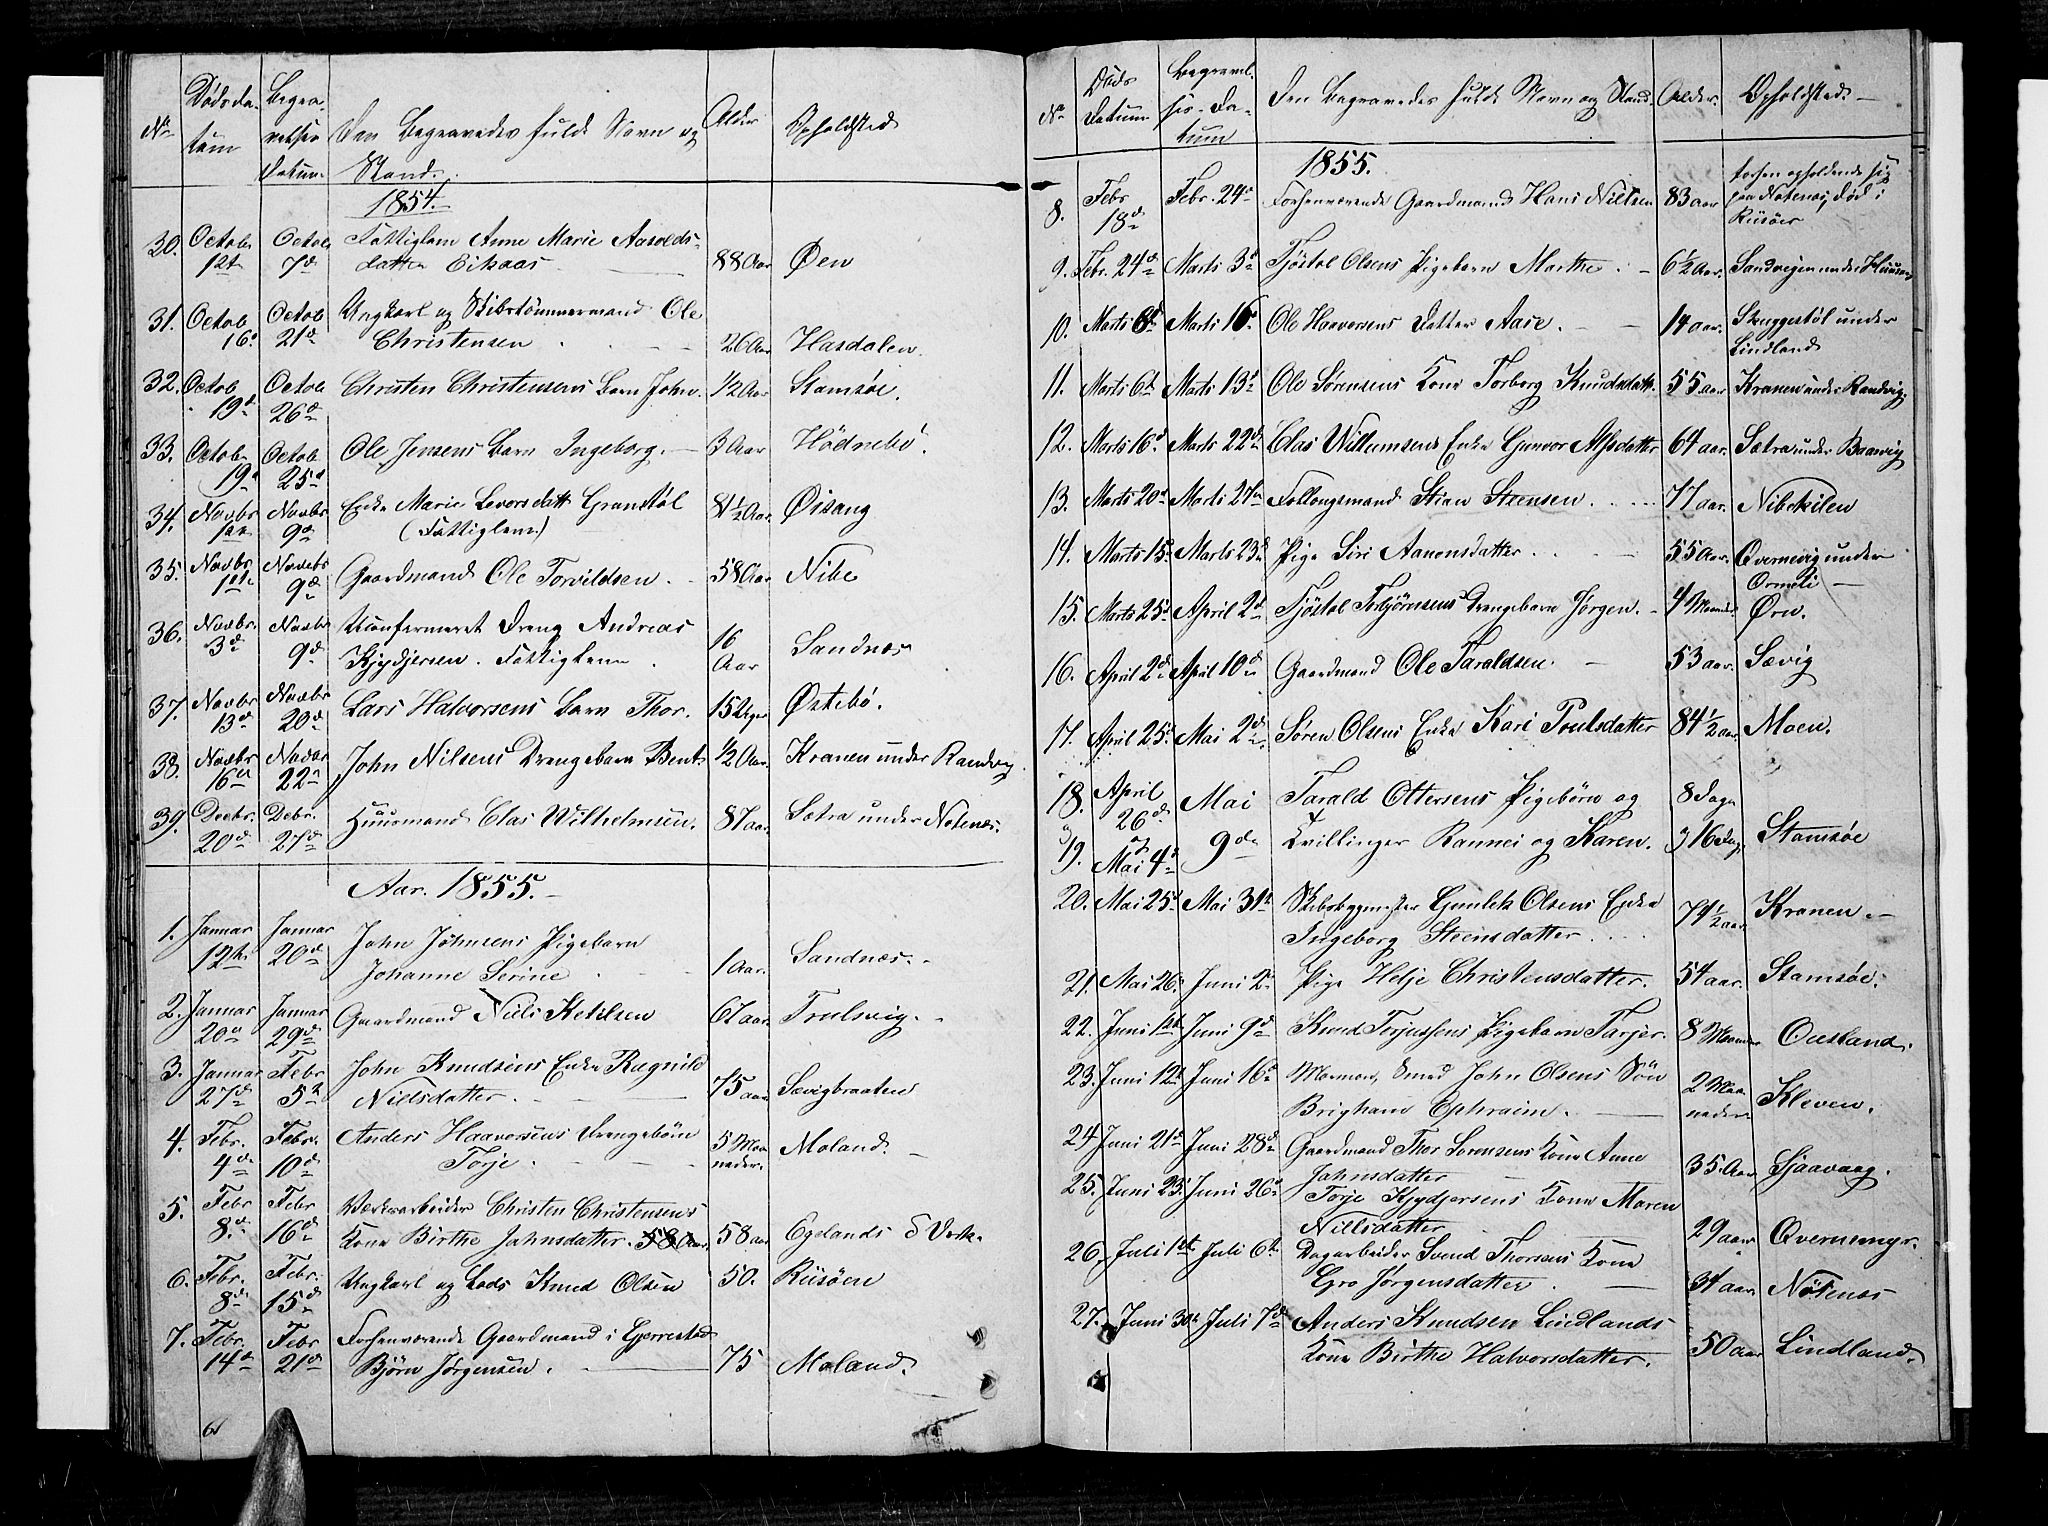 No
Dødsda-
tum
Begra-
velses
Datum
Den Begravedes fulde Navn og
Stand.
Alder
Opholdsted
1854.
30. Octobr 12te Octob 7de Fattiglem Anne Marie Aasolds-
datter Eikaas 88 Aar Øen
31. Octob 16de Octob 21de Ungkarl og Skibstømmermand Ole
Christensen 26 Aar Hasdalen.
32. Octob 19de Octob 26de Christen Christensens Barn John. 1/2 Aar Stamsøe.
33. Octob 19de Octob 25de Ole Jensens Barn Ingeborg. 3 Aar Hödnebö.
34. Novbr 1ste Novbr 9de Enke Marie Levorsdatt Granstøl
(Fattiglem) 81 1/2 Aar Øisang
35. Novbr 1ste Novebr 9de Gaardmand Ole Torvildsen. 58 Aar Nibe
36. Novbr. 3de Novbr 9de Uconfermeret Dreng Andreas
Kjydjersen. Fattiglem. 16 Aar Sandnæs
37. Novbr 13de Novbr 20de Lars Halvorsens Barn Thor. 15 Uger Østebö.
38. Novbr 16de Novbr 22de John Nilsens Drengebarn Bent 1/2 Aar. Kranen under Randvig.
39. Decbr. 20de Debr. 27de Huusmand Clas Wilhelmsen. 87 aar Sætra under Notenæs.
Aar. 1855.
1. Januar 12te Januar 20de John Johnsens Pigebarn
Johanne Serine 1 Aar. Sandnæs.
2. Januar 20de Januar 29de Gaardmand Niels Ketilsen 67 aar Trulsvig.
3. Januar 27de Febr 5te John Knudsens Enke Ragnild
Nielsdatter. 75 aar Sævigbraaten
4. Febr. 4de Febr. 10de Anders Haavorsens Drengebörn
Torje. 5 Maa-
neder. Moland.
5. Febr 8de Febr 16de Værksarbeider Christen Christensens
Kone Birthe Jahnsdatter. 58 Aar. 58 aar Egelands Værk.
6. Febr. 8de Febr. 15de Ungkarl og Lods Knud Olsen 50. Riisöen
7. Febr. 14de Febr 21de Forhenværende Gaardmand i Gjerrestad
Bjørn Jørgensen. 75 Moland.
No
Døds
Datum
Begravel-
ses-Da-
tum
Den Begravedes fulde Navn og Stand.
Alder.
Opholdsted.
1855.
8. Febr 18de Febr. 24de Forhenværende Gaardmand Hans Nielsen 83 aar forhen opholdende sig
paa Notenæs, død i
Riisöer
9. Febr. 24de Marts 3de Tjøstøl Olsens Pigebarn Marthe. 6 1/2 Aar. Sandvigen under
10. Marts 6de Marts 16de Ole Haavorsens Datter Aase. 14 aar. Skuggestöl under
Lindland
11. Marts 6te Marts 13de Ole Sørensens Kone Torborg Knudsdatt. 55 aar Kranen under Randvig.
12. Marts 16de Marts 22de Clas Willumsens Enke Gunvor Alfsdatter 64 aar. Sætra under Baasvig
13. Marts 20de Marts 27de Føllougsmand Stian Steensen. 77 aar. Nibekilen
14. Marts 15de Marts 23de Pige Siri Aanonsdatter. 55 Aar. Qvernevig under
Ormeli
15. Marts 25de April 2de Tjöstöl Torbjörnsens Drengebarn Jørgen. 4 Maaned Øen.
16. April 2de April 10de Gaardmand Ole Taraldsen. 53 aar. Sævig
17. April 25de Mai 2de. Søren Olsens Enke Kari Poulsdatter 84 1/2 aar. Moen.
18. April 26de og Mai Tarald Ottersens Pigebörn og 8 Dage
og 19. Mai 4de 9de Tvillinger Rannei og Karen. og 16 Dage Stamsöe
20. Mai 25de Mai 31te Skibsbygmester Gunlek Olsens Enke
Ingeborg Steensdatter. 74 1/2 aar Kranen.
21. Mai 26. Juni 2de Pige Helje Christensdatter. 54 aar. Stamsöe.
22. Juni 1ste Juni 9de Knud Terjussens Pigebarn Tarjer. 8 Maaneder Ousland.
23. Juni 12te Juni 16de Mormon, Smed John Olsens Sön
Brigham Ephraim. 2 Maa-
neder Kleven.
24. Juni 21de Juni 28de Gaardmand Thor Sørensens Kone Anne
Jahnsdatter 35 Aar Sjaavaag.
25. Juni 23. Juni 26de Torje Kjydjersens Kone Maren
Nillsdatter 29 aar Qvernemyr.
26. Juli 1ste Juli 6te Dagarbeider Svend Thorsens Kone
Gro Jørgensdatter. 34 aar Nötenæs
27. Juni 30te Juli 7de Anders Knudsen Lindlands
Kone Birthe Halvorsdatter. 50 aar Lindland.